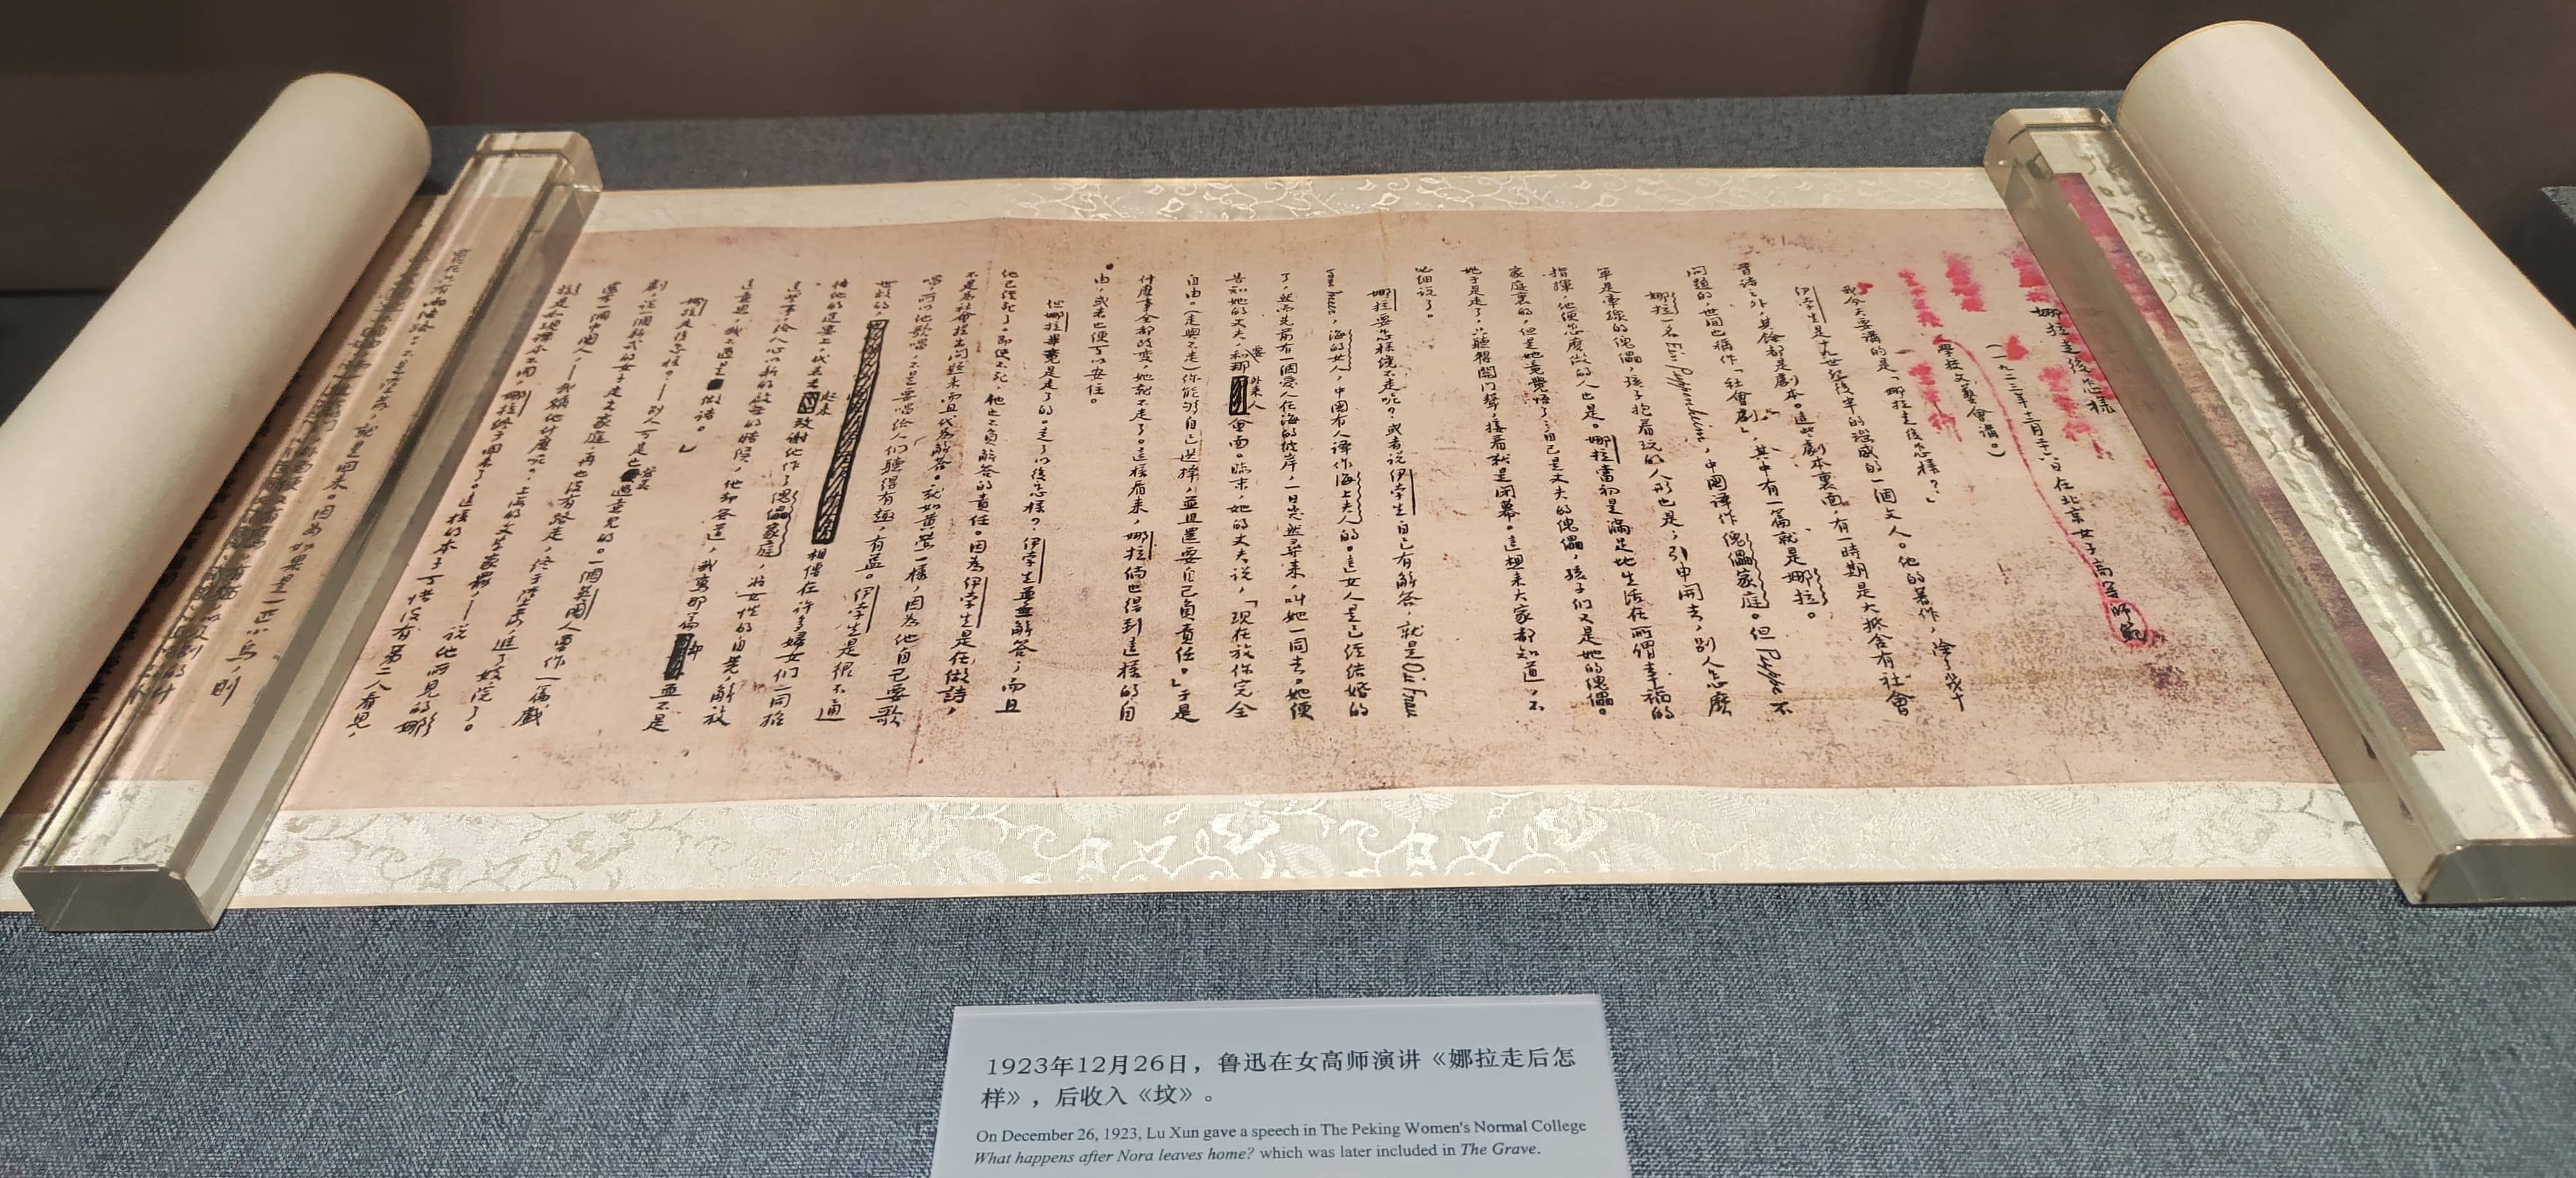 娜拉走後怎樣
（一九二三年十二月二六日在北京女子高等師範
學校文藝會講。）
我今天要講的是「娜拉走後怎樣？」
伊孛生是十九世紀後半的瑙威的一個文人。他的著作，除了幾十
首詩之外，其餘都是劇本。這些劇本裏面，有一時期是大抵含有社會
問題的，世間也稱作「社會劇」，其中有一篇就是娜拉。
娜拉一名Ein Puppenheim，中國譯作傀儡家庭。但Puppe不
單是牽線的傀儡，孩子抱着玩的人形也是；引申開去，別人怎麼
指揮，他便怎麼做的人也是。娜拉當初是滿足地生活在所謂幸福的
家庭裏的，但是她竟覺悟了：自己是丈夫的傀儡，孩子們又是她的傀儡。
她于是走了，只聽得關門聲，接着就是閉幕。這想來大家都知道，不
必細說了。
娜拉要怎樣纔不走呢？或者說伊孛生自己有解答，就是Die Frau
vom Meer，海的女人，中國有人譯作海上夫人的。這女人是已經結婚的
了，然而先前有一個愛人在海的彼岸，一日突然尋來，叫她一同去。她便
告知她的丈夫，要和那外來人會面。臨末，她的丈夫說，「現在放你完全
自由。（走與不走）你能夠自己選擇，並且還要自己負責任。」于是
什麼事全都改變，她就不走了。這樣看來，娜拉倘也得到這樣的自
由，或者也便可以安住。
但娜拉畢竟是走了的。走了以後怎樣？伊孛生並無解答；而且
他已經死了。即使不死，他也不負解答的責任。因為伊孛生是在做詩，
不是為社會提出問題來而且代為解答。就如黃鶯一樣，因為他自己要歌
唱，所以他歌唱，不是要唱給人們聽得有趣，有益。伊孛生是很不通
世故的，相傳在許多婦女們一同招
待他的筵宴上，代表者起來致謝他作了傀儡家庭，將女性的自覺，解放
這些事，給人心以新的啟示的時候，他卻答道，「我寫那篇卻並不是
這意思，我不過是做詩。」
娜拉走後怎樣？——別人可是也發表過意見的。一個英國人曾作一篇戲
劇，說一個新式的女子走出家庭，再也沒有路走，終于墮落，進了妓院了。
還有一個中國人，——我稱他什麼呢？上海的文學家罷，——說他所見的娜
拉是和現譯本不同，娜拉終于回來了。這樣的本子可惜沒有第二人看見，
1923年12月26日，鲁迅在女高师演讲《娜拉走后怎
样》，后收入《坟》。
On December 26, 1923, Lu Xun gave a speech in The Peking Women's Normal College
What happens after Nora leaves home? which was later included in The Grave.